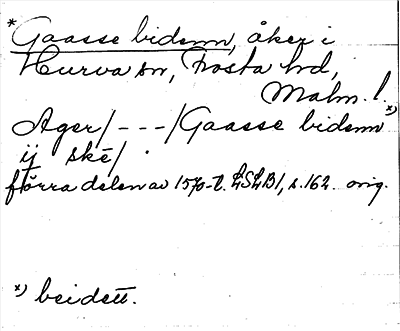 *Gaasse bidenn, åker i
Hurva sn, Frosta hd,
Malm. l.
Ager/---/Gaasse bidenn x)
ij ske/.
förra delen av 1570-t. LSLB1, s.162. orig.
x) beidett.